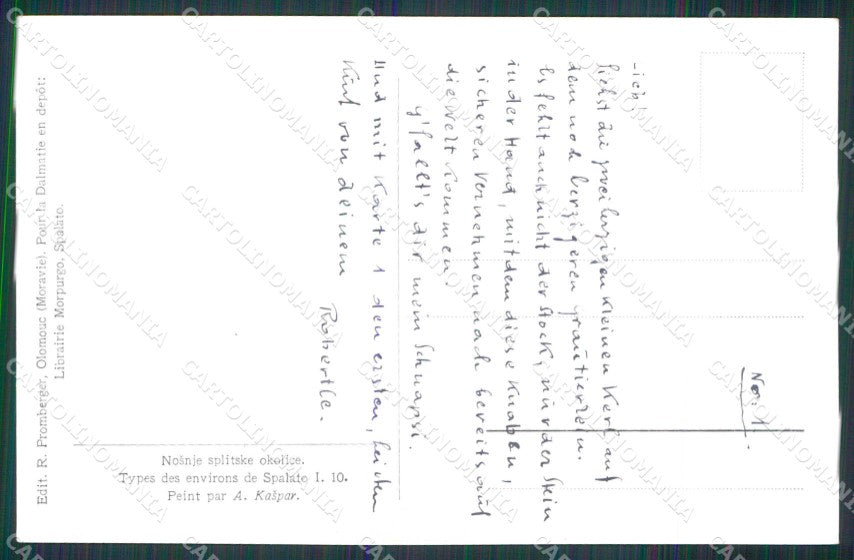 -ich!
Siehst du zwei herzigen kleinen Kerl auf
dem noch herzigeren grautierlein.
Es fehlt auch nicht der Stock, nur der Skin
in der Hand, mit dem diese Knaben,
sicheren Vernehmen nach bereits auf
die Welt kommen.
g'fallt's dir mein Schnapsi.
Und mit Karte 1 den ersten,
von deinem
Robertle.
No: 1.
Edit. R. Promberger, Olomouc (Moravie). Pour la Dalmatie en depôt:
Librairie Morpurgo, Spalato.
Nošnje splitske okolice.
Types des environs de Spalato I. 10.
Peint par A. Kašpar.
CARTOLINOMANIA